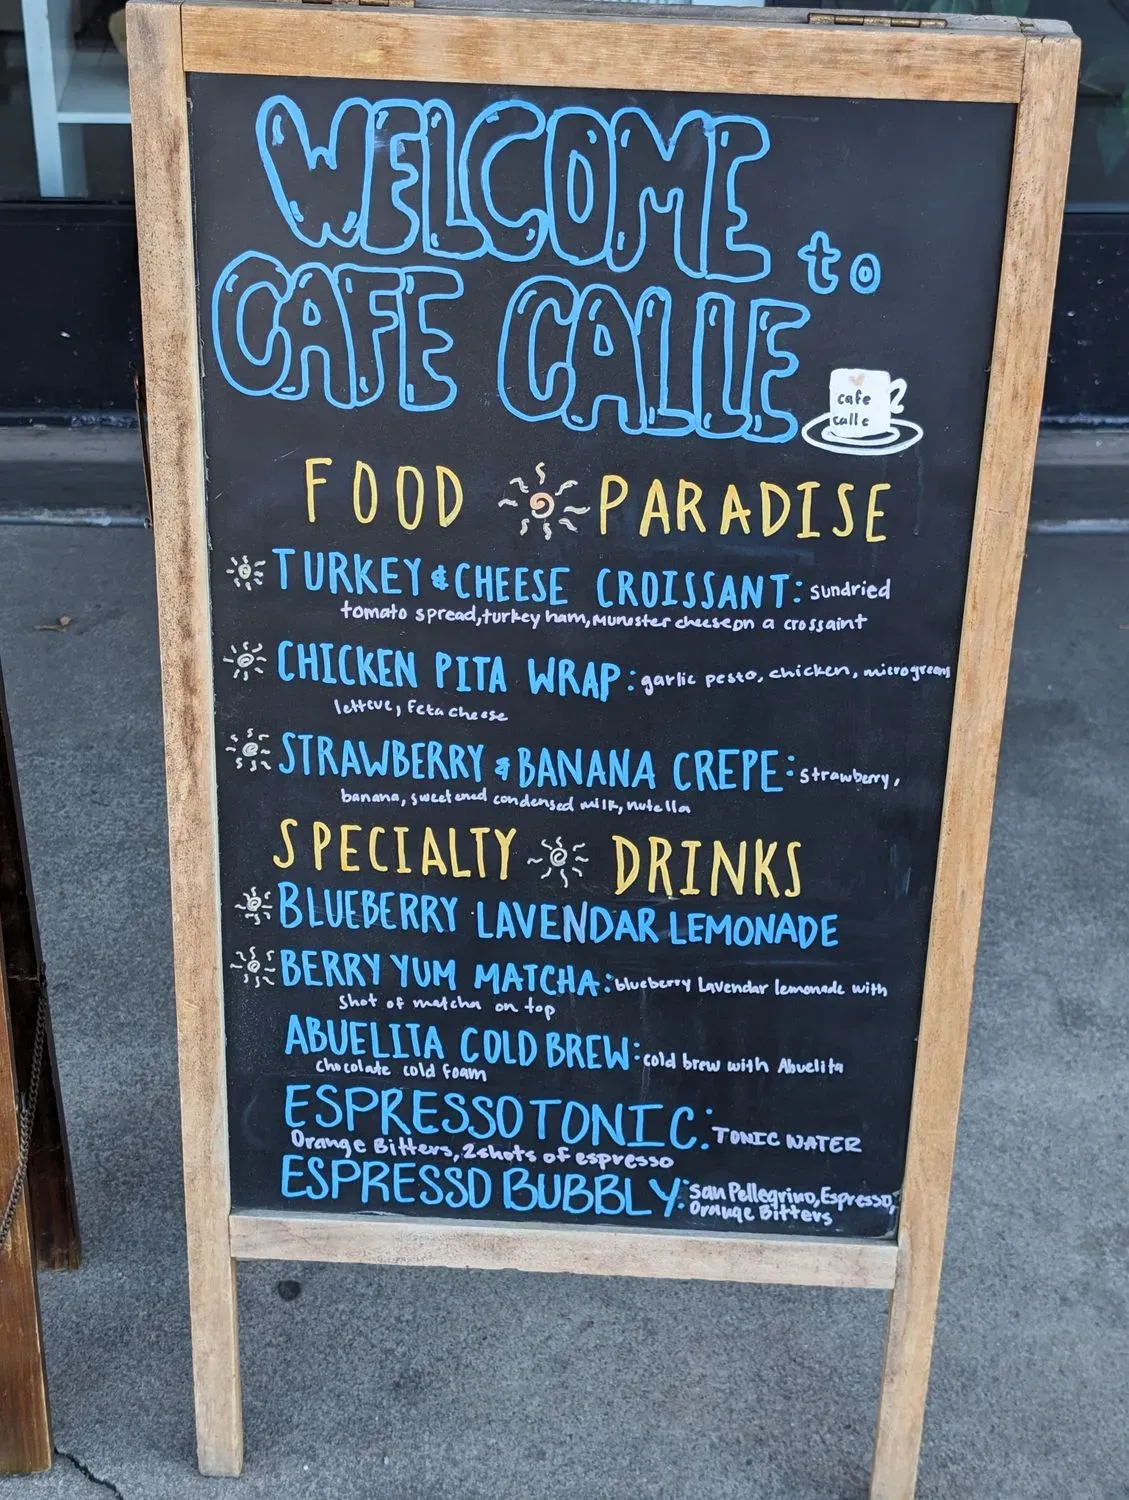 WELCOME to
CAFE CALLE
cafe
calle
FOOD PARADISE
TURKEY & CHEESE CROISSANT: sundried
tomato spread, turkey ham, Munster cheese on a crossaint
CHICKEN PITA WRAP: garlic pesto, chicken, microgreens
lettuce, Feta cheese
STRAWBERRY & BANANA CREPE: strawberry,
banana, sweetened condensed milk, nutella
SPECIALTY DRINKS
BLUEBERRY LAVENDAR LEMONADE
BERRY YUM MATCHA: blueberry Lavendar lemonade with
shot of matcha on top
ABUELITA COLD BREW: cold brew with Abuelita
chocolate cold foam
ESPRESSO TONIC: TONIC WATER
Orange Bitters, 2 shots of espresso
ESPRESSO BUBBLY: San Pellegrino, Espresso,
Orange Bitters